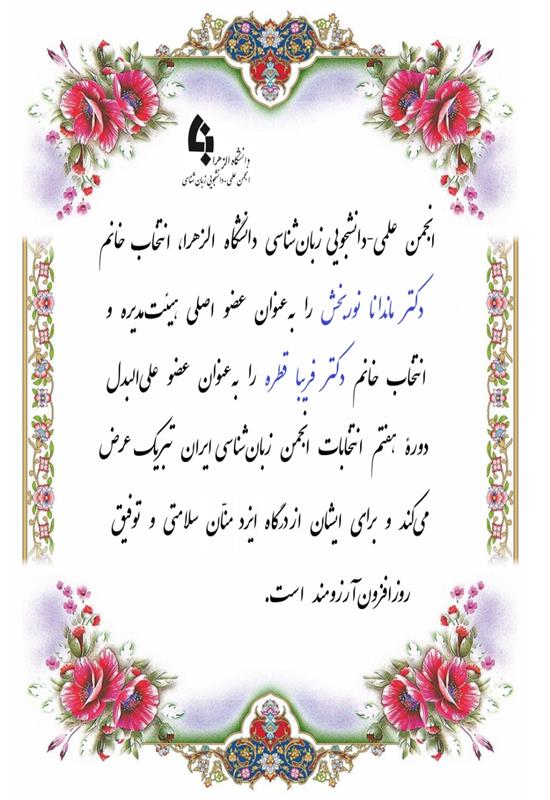 دانشگاه الزهرا
انجمن علمی-دانشجویی زبان‌شناسی
انجمن علمی-دانشجویی زبان‌شناسی دانشگاه الزهرا، انتخاب خانم
دکتر ماندانا نوربخش را به‌عنوان عضو اصلی هیئت‌مدیره و
انتخاب خانم دکتر فریبا قطره را به‌عنوان عضو علی‌البدل
دورهٔ هفتم انتخابات انجمن زبان‌شناسی ایران تبریک عرض
می‌کند و برای ایشان از درگاه ایزد منّان سلامتی و توفیق
روزافزون آرزومند است.